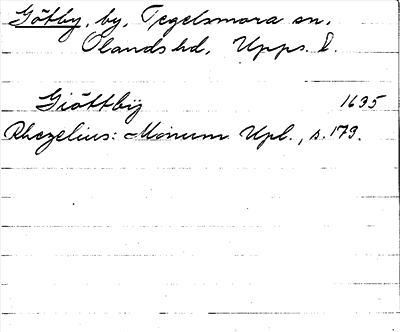 Götby, by, Tegelsmora sn,
Olands hd, Upps. l.
Giöttbÿ 1635
Rhezelius: Monum Upl., s. 179.